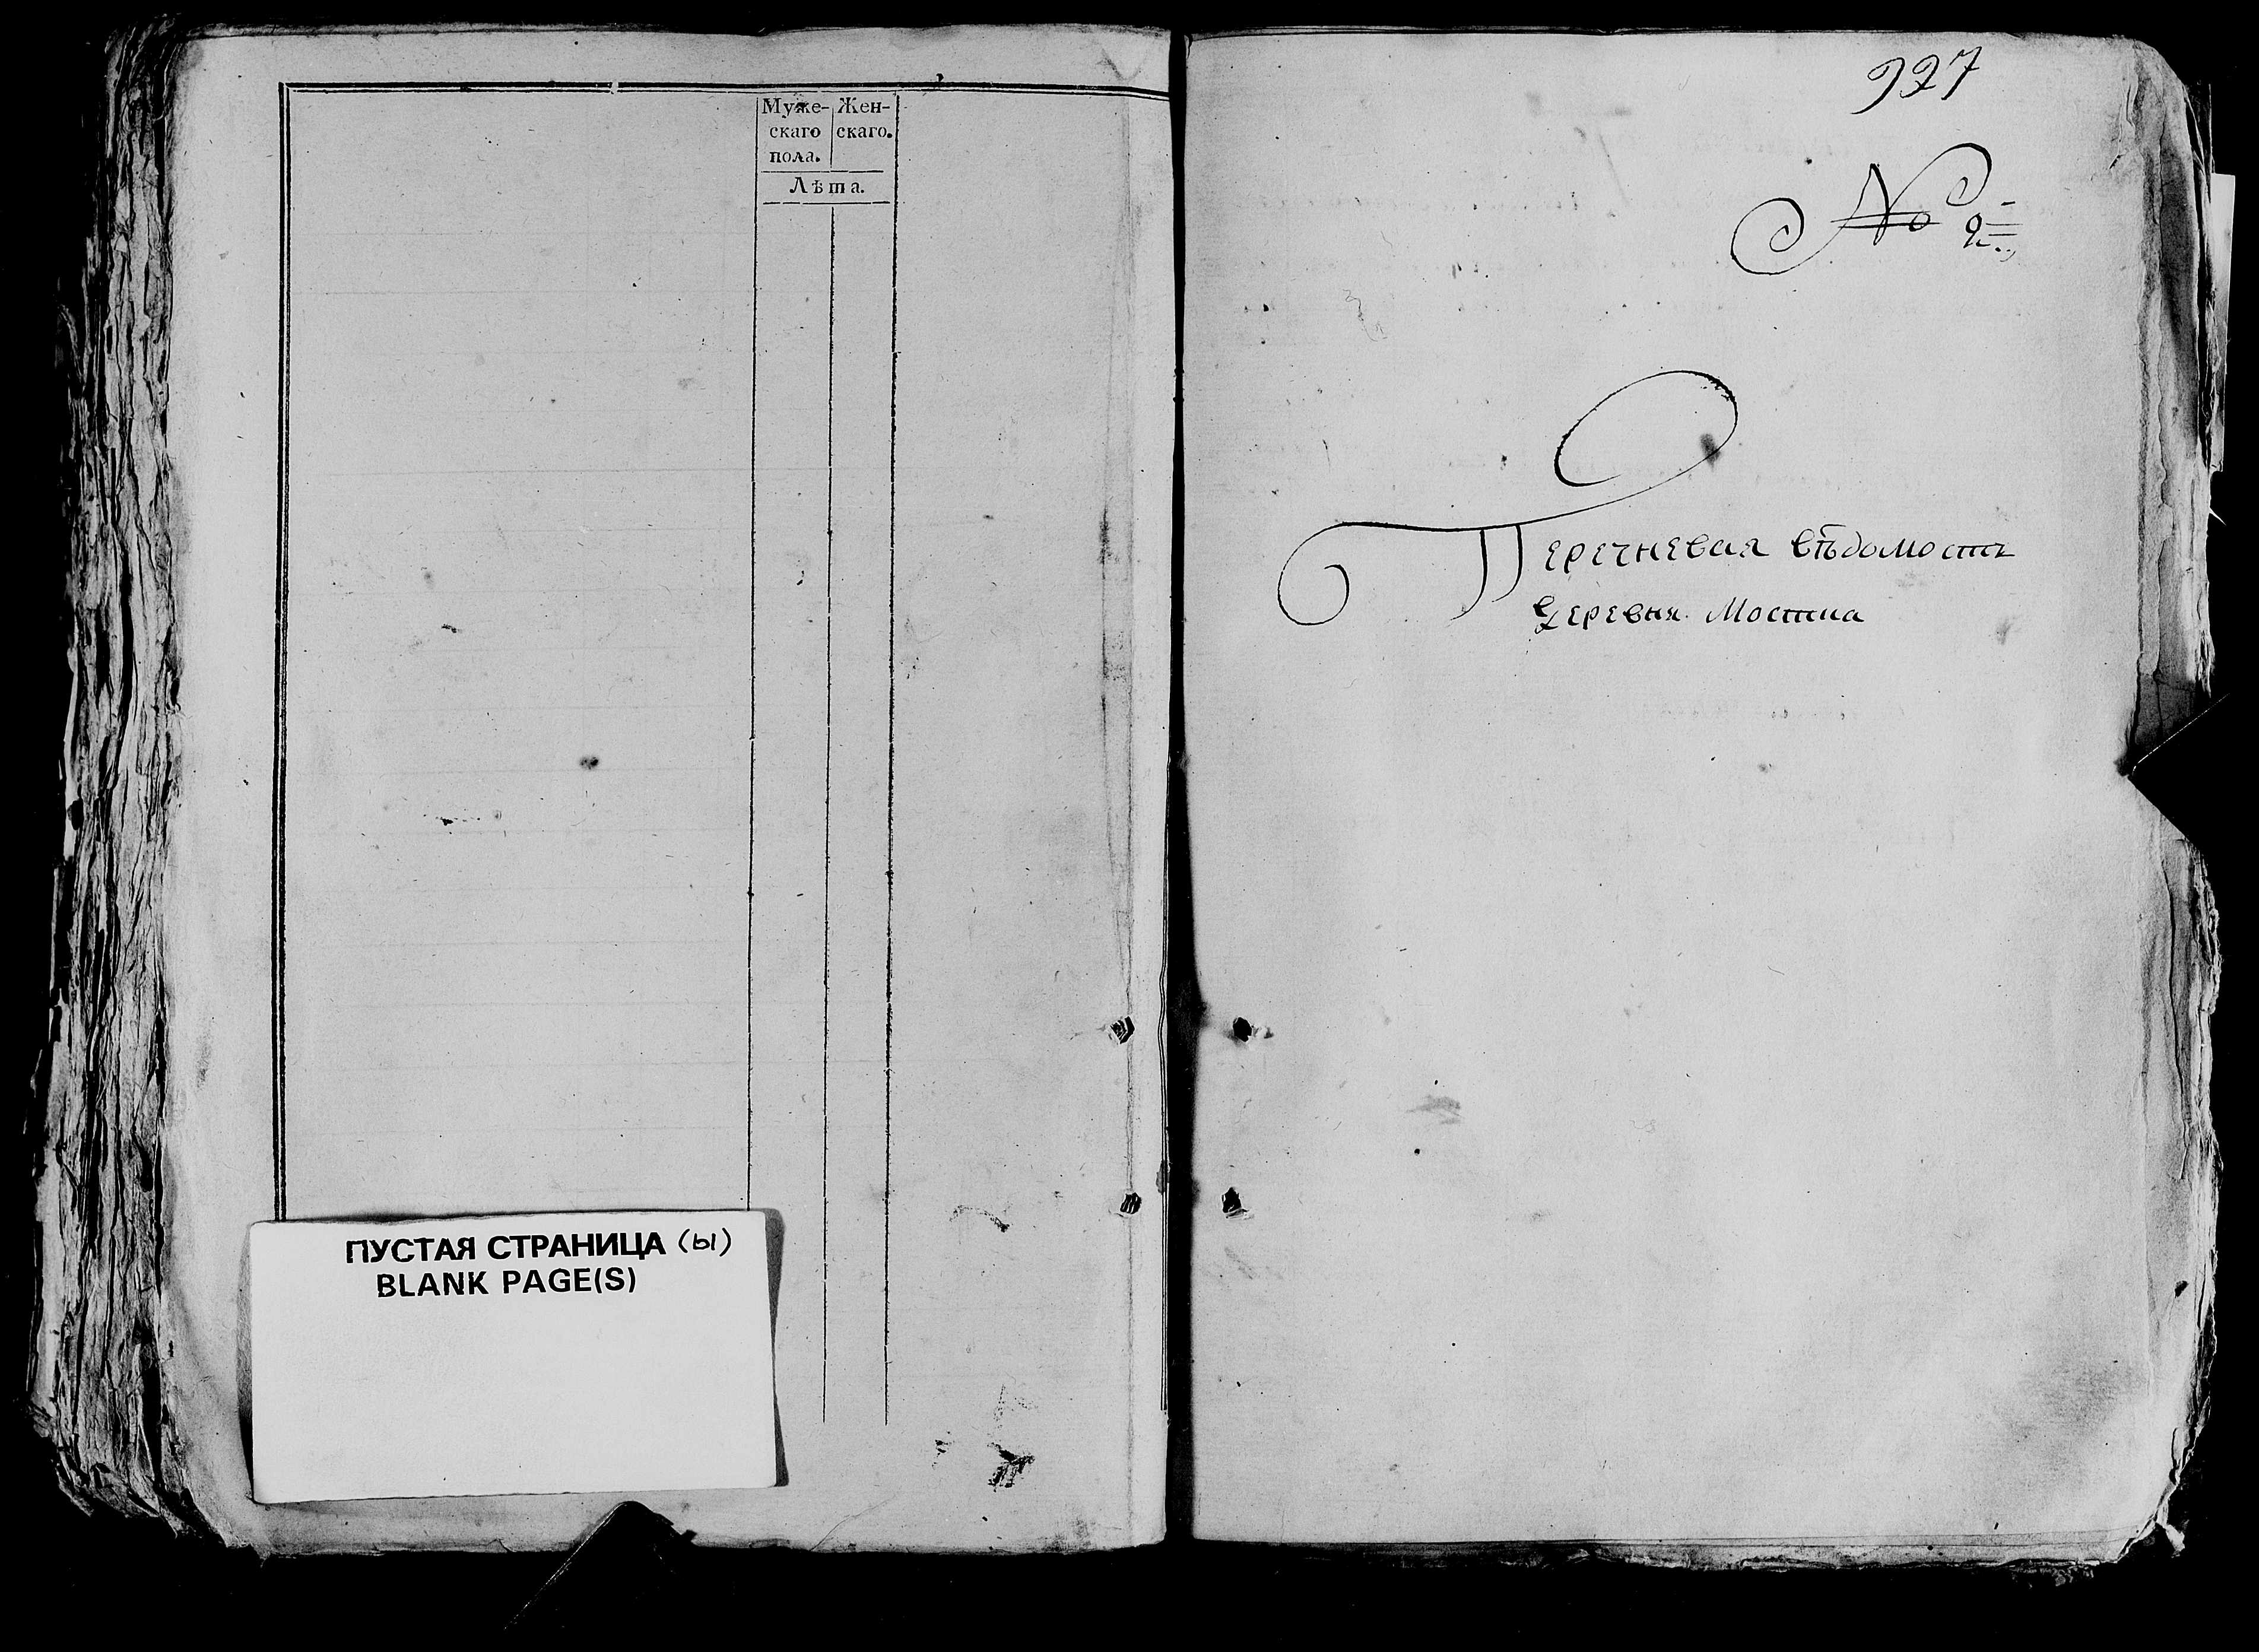 Муже- Жен-
скаго скаго.
пола.
Лѣта.
ПУСТАЯ СТРАНИЦА (ы)
BLANK PAGE(S)
927
№ 2
Перечневая вѣдомость
деревня Мостица